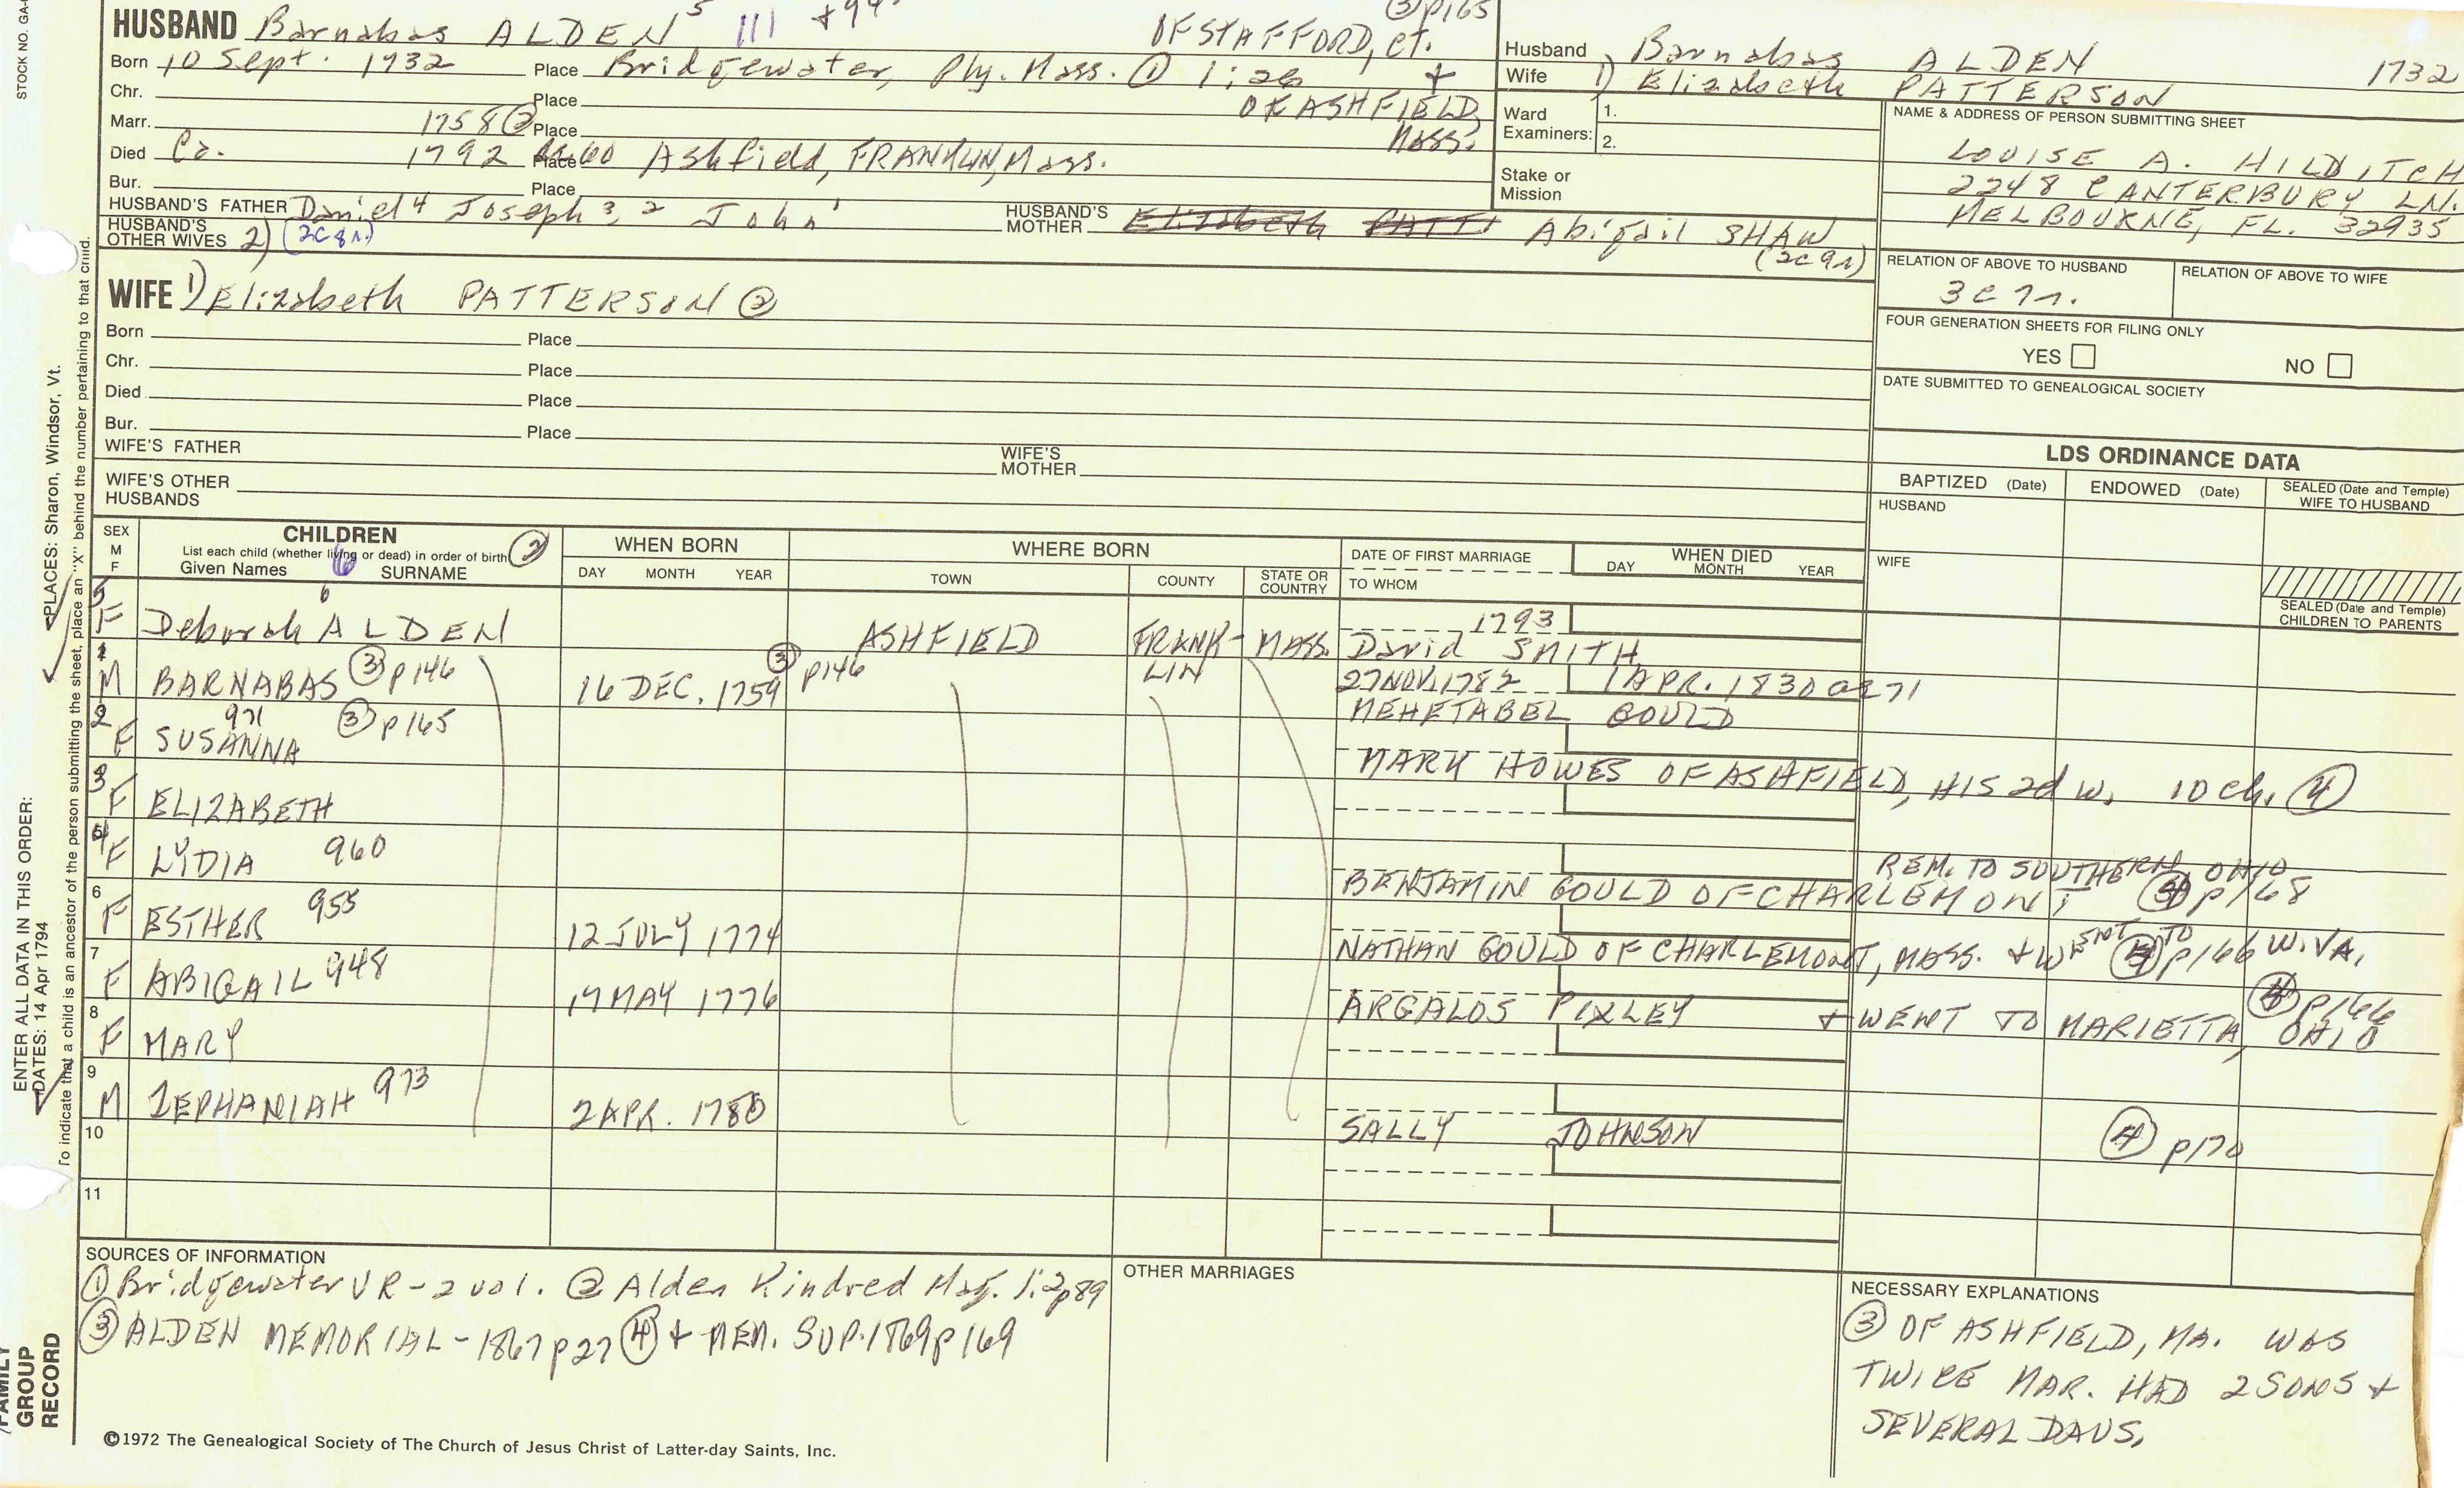 STOCK NO. GA-
HUSBAND Barnabas ALDEN 5 111 +94 OF STAFFORD, CT. ③ p165
Born 10 Sept. 1732 Place Bridgewater, Ply. Mass. ① 1:26 +
Chr. Place OF ASHFIELD
Marr. 1758 ② Place MASS.
Died Ca. 1792 Place Ashfield, FRANKLIN, Mass.
Bur. Place
HUSBAND'S FATHER Daniel 4 Joseph 3, 2 John 1 HUSBAND'S MOTHER Elizabeth PATT Abigail SHAW
HUSBAND'S OTHER WIVES 2) (2C8r.) (2C9r)
Husband 1) Barnabas ALDEN 1732
Wife 1) Elizabeth PATTERSON
Ward 1.
Examiners: 2.
Stake or
Mission
NAME & ADDRESS OF PERSON SUBMITTING SHEET
LOUISE A. HILDITCH
2248 CANTERBURY LN.
MELBOURNE, FL. 32935
RELATION OF ABOVE TO HUSBAND RELATION OF ABOVE TO WIFE
3C7r.
FOUR GENERATION SHEETS FOR FILING ONLY
YES NO
DATE SUBMITTED TO GENEALOGICAL SOCIETY
WIFE 1) Elizabeth PATTERSON ②
Born Place
Chr. Place
Died Place
Bur. Place
WIFE'S FATHER WIFE'S MOTHER
WIFE'S OTHER
HUSBANDS
LDS ORDINANCE DATA
BAPTIZED (Date) ENDOWED (Date) SEALED (Date and Temple) WIFE TO HUSBAND
HUSBAND
WIFE
SEALED (Date and Temple)
CHILDREN TO PARENTS
SEX M F CHILDREN ② WHEN BORN WHERE BORN DATE OF FIRST MARRIAGE WHEN DIED
List each child (whether living or dead) in order of birth
Given Names SURNAME DAY MONTH YEAR TOWN COUNTY STATE OR COUNTRY TO WHOM DAY MONTH YEAR
5 F Deborah 6 ALDEN ASHFIELD FRANK-LIN MASS. 1793
David SMITH
1 M BARNABAS ③ p146 16 DEC. 1759 ③ p146 27 NOV. 1782 1 APR. 1830 a 71
MEHETABEL GOULD
2 F SUSANNA 971 ③ p165
MARK HOWES OF ASHFIELD, HIS 2d W. 10 ch. ④
3 F ELIZABETH
4 F LYDIA 960 REM. TO SOUTHERN OHIO
BENJAMIN GOULD OF CHARLEMONT ④ p168
6 F ESTHER 955 12 JULY 1774
NATHAN GOULD OF CHARLEMONT, MASS. + WENT TO ④ p166 W. VA.
7 F ABIGAIL 948 17 MAY 1776 ④ p166
ARGALOS PIXLEY + WENT TO MARIETTA, OHIO
8 F MARY
9 M ZEPHANIAH 973 2 APR. 1780
SALLY JOHNSON ④ p170
10
11
SOURCES OF INFORMATION
① Bridgewater VR - 2 vol. ② Alden Kindred Mag. 1:2 p89
③ ALDEN MEMORIAL - 1867 p27 ④ + MEM. SUP. 1869 p169
OTHER MARRIAGES
NECESSARY EXPLANATIONS
③ OF ASHFIELD, MA. WAS
TWICE MAR. HAD 2 SONS +
SEVERAL DAUS.
©1972 The Genealogical Society of The Church of Jesus Christ of Latter-day Saints, Inc.
ENTER ALL DATA IN THIS ORDER:
DATES: 14 Apr 1794 PLACES: Sharon, Windsor, Vt.
To indicate that a child is an ancestor of the person submitting the sheet, place an "X" behind the number pertaining to that child.
FAMILY
GROUP
RECORD